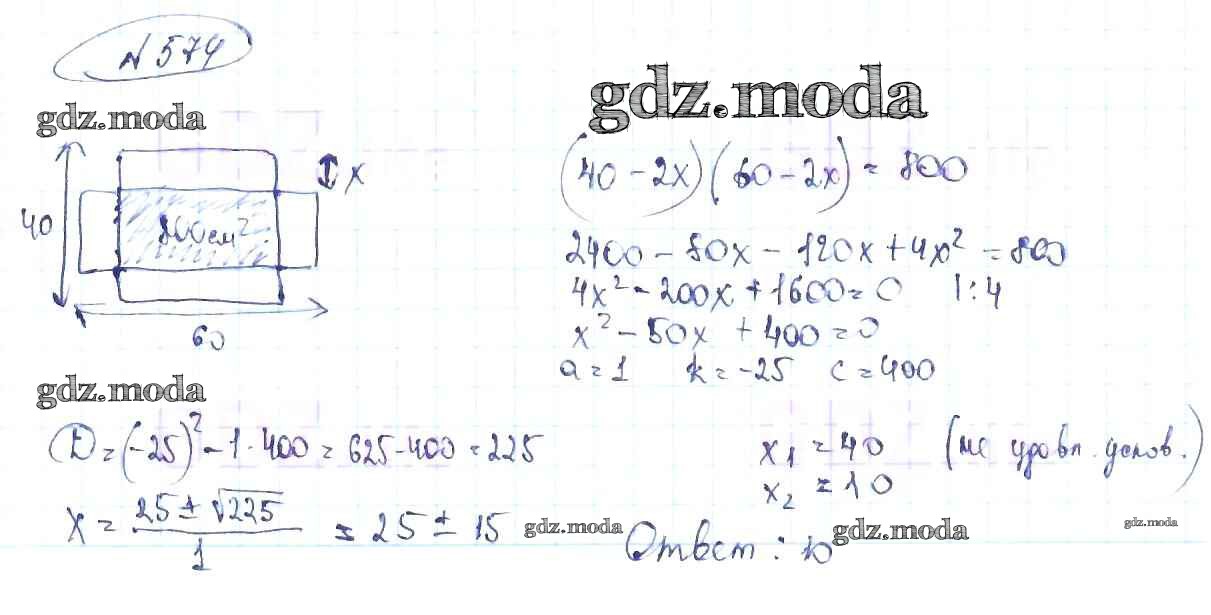 N 574
gdz.moda
gdz.moda
40
800 см²
x
60
(40 - 2x)(60 - 2x) = 800
2400 - 80x - 120x + 4x² = 800
4x² - 200x + 1600 = 0 | : 4
x² - 50x + 400 = 0
a = 1 k = -25 c = 400
gdz.moda
D = (-25)² - 1 · 400 = 625 - 400 = 225
x = (25 ± √225) / 1 = 25 ± 15
x₁ = 40 (не удовл. услов.)
x₂ = 10
gdz.moda
Ответ: 10
gdz.moda
gdz.moda